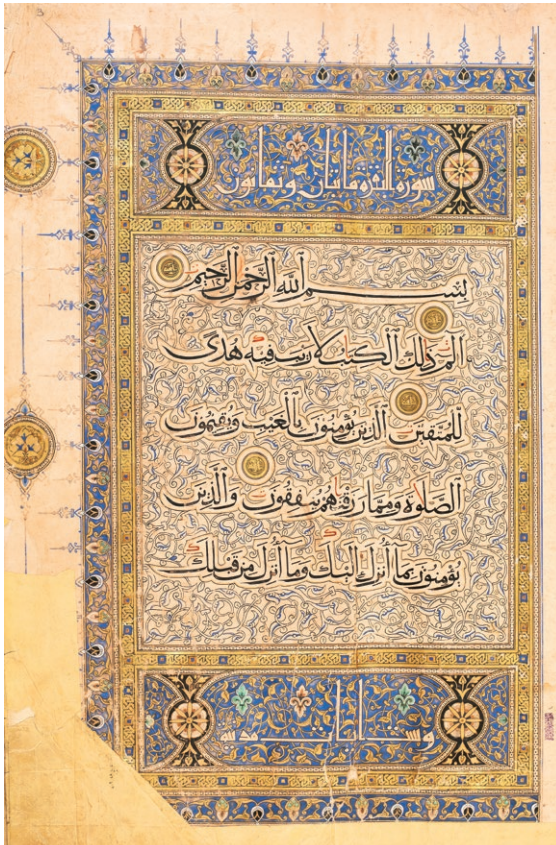 سورة البقرة مايتان وثمانون
بِسْمِ اللَّهِ الرَّحْمَنِ الرَّحِيمِ
الم ذَلِكَ الْكِتَبُ لَا رَيْبَ فِيهِ هُدًى
لِلْمُتَّقِينَ الَّذِينَ يُؤْمِنُونَ بِالْغَيْبِ وَيُقِيمُونَ
الصَّلَوةَ وَمِمَّا رَزَقْنَهُمْ يُنْفِقُونَ وَالَّذِينَ
يُؤْمِنُونَ بِمَا أُنْزِلَ إِلَيْكَ وَمَا أُنْزِلَ مِنْ قَبْلِكَ
وست ايات مدنية